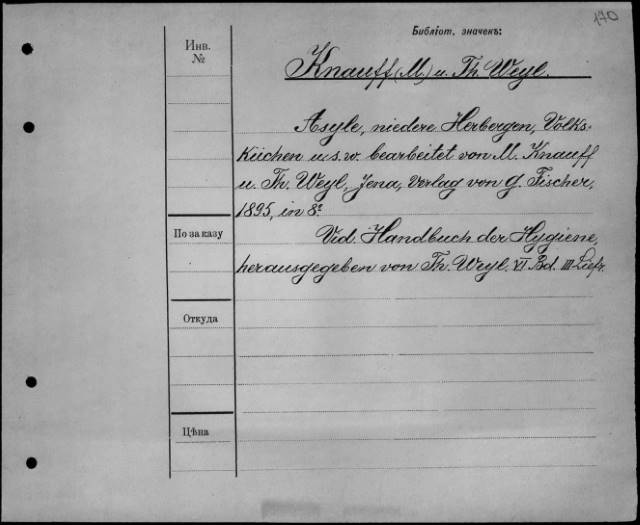 170
Библіот. значекъ:
Инв.
№
Knauff (M.) u. Th. Weyl.
Asyle, niedere Herbergen, Volks-
Küchen u. s. w. bearbeitet von M. Knauff
u. Th. Weyl, Jena, Verlag von G. Fischer,
1895, in 8º.
По заказу
Vid. Handbuch der Hygiene,
herausgegeben von Th. Weyl. VI Bd. III Liefr.
Откуда
Цѣна